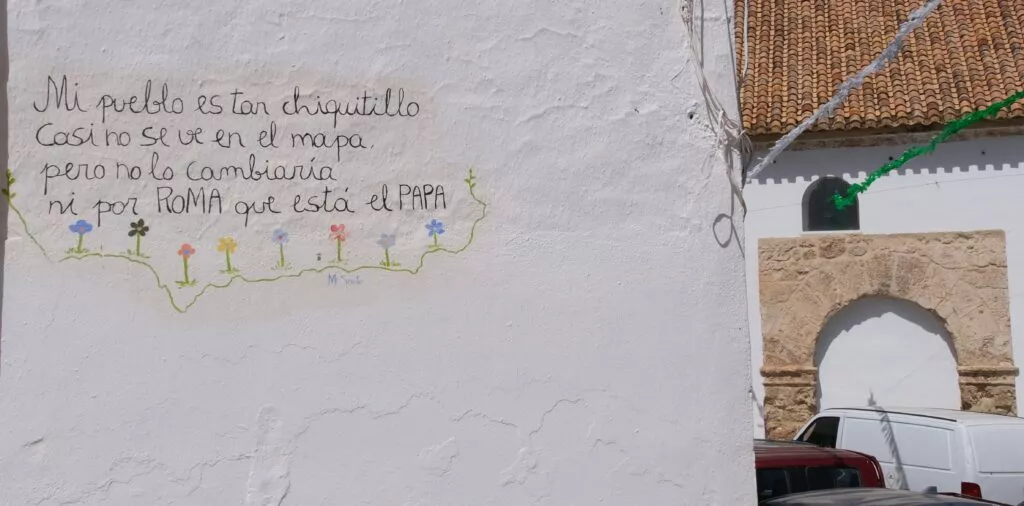 Mi pueblo es tan chiqutillo
Casi no se ve en el mapa.
pero no lo cambiaría
ni por ROMA que está el PAPA